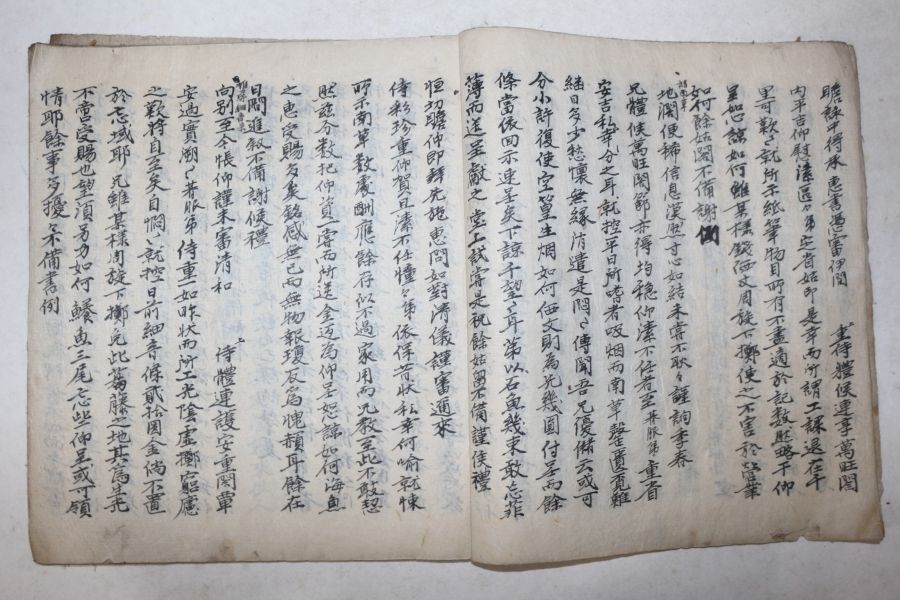 瞻詠中得承 惠書憑審伊間 重侍體候連享萬旺閤
內平吉仰慰溸區〻弟 省姑印是幸而所謂工課退在千
里可歎〻就所示紙筆物目所有不盡適於記数照略干仰
呈恕諒如何雖某樣錢酒文周旋下擲使之不害於營業
如何餘姑閣不備謝例
地濶便稀信息漠然寸心如結未嘗不耿〻謹詢季春
兄體候萬旺閤節亦得均穩仰溸不任者至 弟重省
安吉私幸分之耳就控平日所嗜者吸烟而南草罄匱覓難
継日多少愁懷無緣消遣是悶〻傳聞吾兄優備云或可
分小許復使空篁生烟如何価文則為先幾圓付呈而餘
條當依回示速呈矣下諒千望〻耳第以石魚幾束敢忘菲
薄而送呈 之堂上試嘗是祝餘姑留不備謹候禮
恒切瞻仰即拜先施惠問如對淸儀謹審邇來
侍彩珍重仰賀且溸不任憧〻弟依保昔狀私幸何喩就悚
所示南草数處酬應餘存似不過家用而兄教至此不敢恝
然玆分数把仰資一嘗而所送金返為仰呈恕諒如何海魚
之惠受賜多矣銘感無已而無物報瓊反為愧赧耳餘在
日間進敍不備謝候禮
向別至今悵仰謹未審淸和 侍體連護安重閤覃
安過實溯〻弟侍重一如昨狀而所工光陰虛擲窮廬
之歎將自至矣自憫〻就控日前細音條貳拾圓金倘不置
於忘域耶兄雖某樣周旋下擲免此葛藤之地其為生光
不啻受賜也望須另力如何 魚三尾忘些仰呈或可領
情耶餘事多擾不備書例